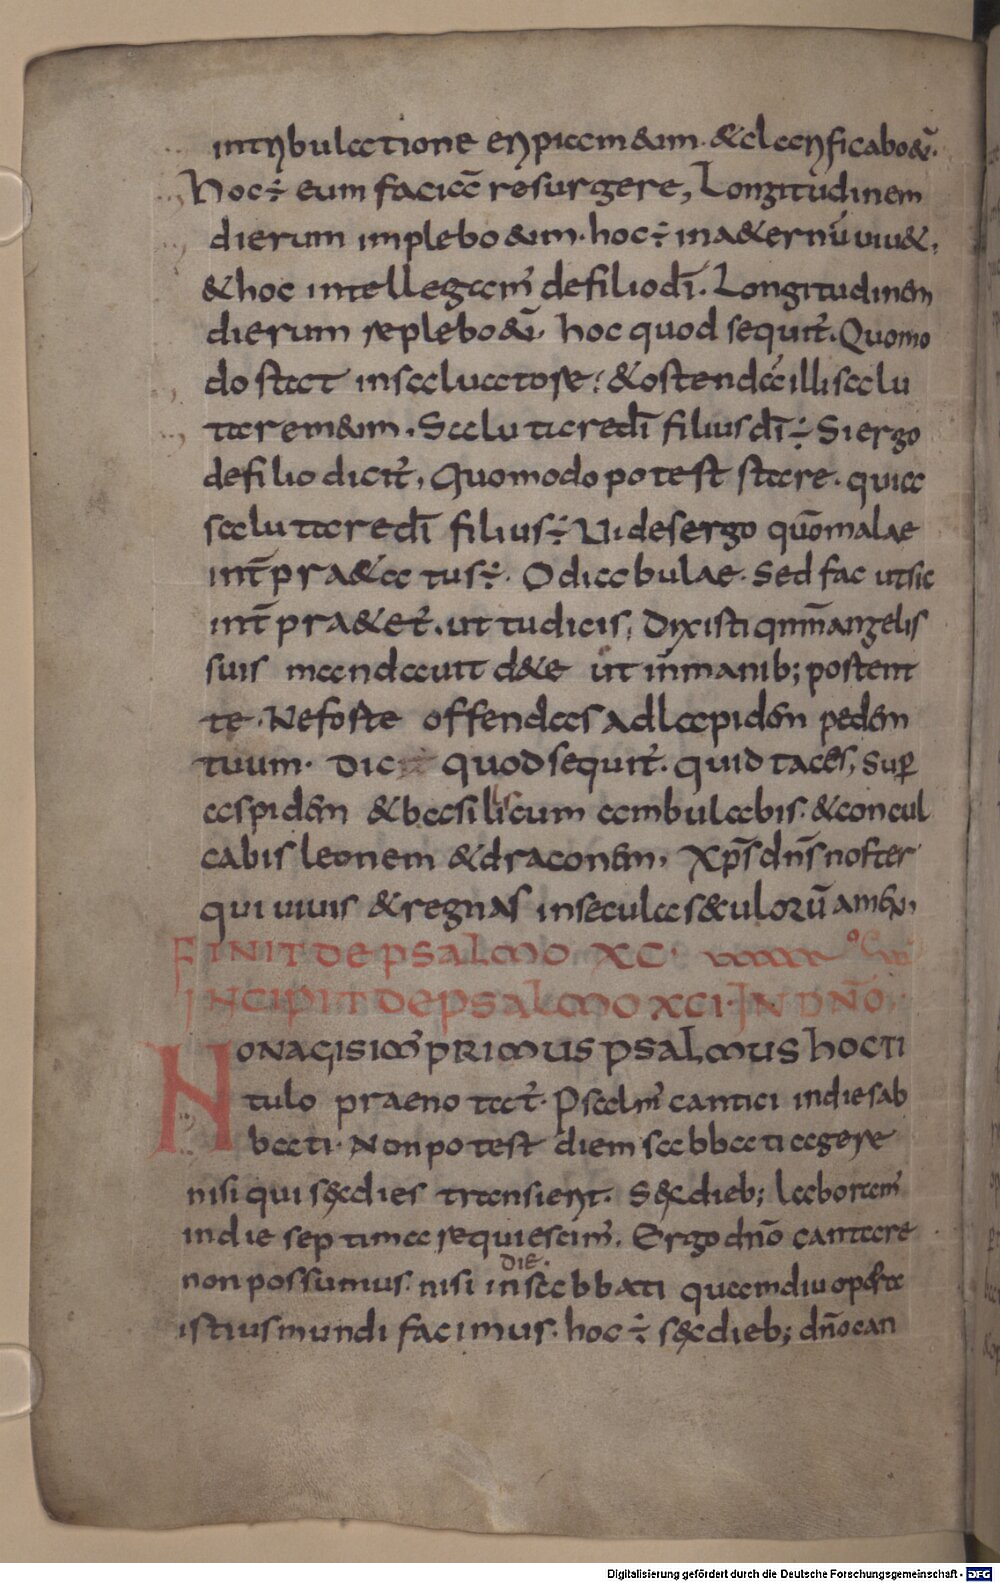 intribulatione eripiam &um. &clarificabo eū.
hoc ÷ eum faciā resurgere, Longitudinem
dierum implebo &um. hoc ÷ in a&ernū uiu&,
&hoc intellegam' defilio dī. Longitudinem
dierum replebo eū. hoc quod sequit'. Quomo
do stat insaluatore; &ostendā illi salu
tarem&um. Salutare dī filius dī ÷ Si ergo
defilio dicit', Quomodo potest stare. quia
salutare dī filius ÷ Uides ergo quōmalae
int̄pra&atus ÷. O diabulae. Sed fac ut sic
int̄pra&et'. ut tu dicis, Dixisti qm̄angelis
suis mandauit d&e ut in manib; portent
te. Neforte offendas ad lapidem pedem
tuum. Dic quod sequit'. quid taces, Sup̄
aspidem &basiliscum ambulabis. &concul
cabis leonem &draconem, Xp̄s dn̄s noster
qui uiuis &regnas insecula s&ulorū am̄,
FINIT DE PSALMO XC.
INCIPIT DE PSALMO XCI. IN DN̄O.
NONAGISIM' PRIMUS PSALMUS HOC TI
tulo praenotat'. Psalm' cantici in die sab
bati. Non potest diem sabbati agere
nisi qui sex dies transierit. Sex dieb; laboram'
in die septima requiescim', Ergo dn̄o cantare
non possumus. nisi in die sabbati quamdiu opera
istius mundi facimus. hoc ÷ sex dieb; dn̄o can
Digitalisierung gefördert durch die Deutsche Forschungsgemeinschaft - DFG